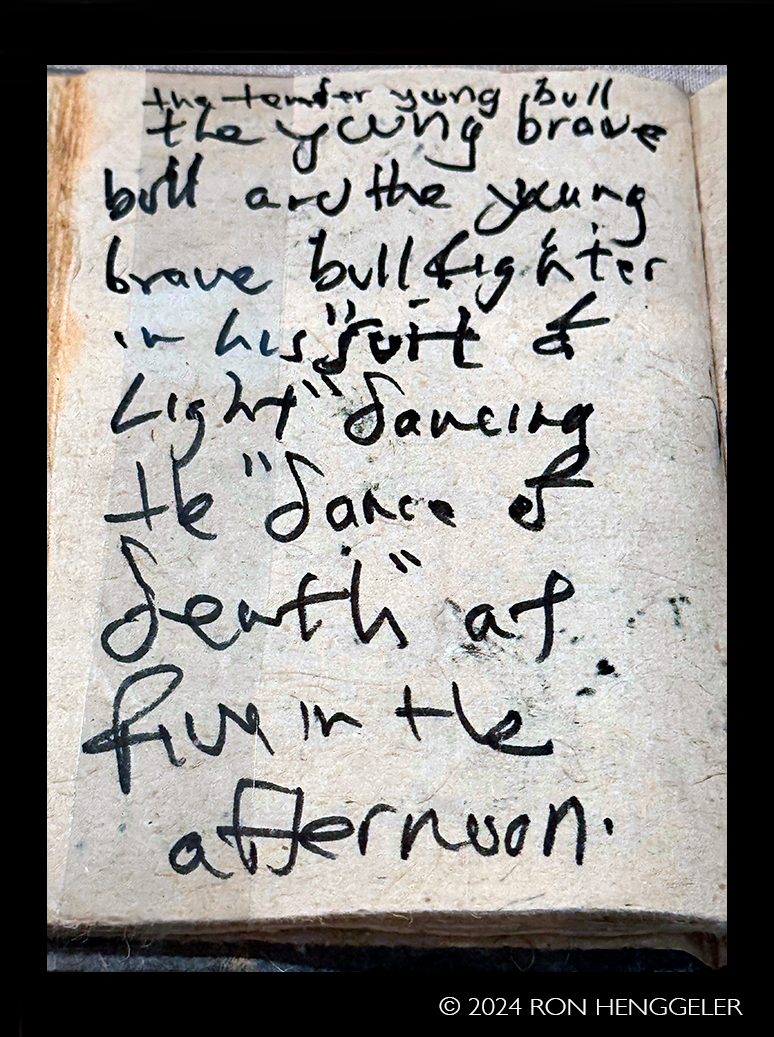 the tender young bull
the young brave
bull and the young
brave bullfighter
in his "suit of
Light" dancing
the "dance of
death" at
five in the
afternoon.
© 2024 RON HENGGELER